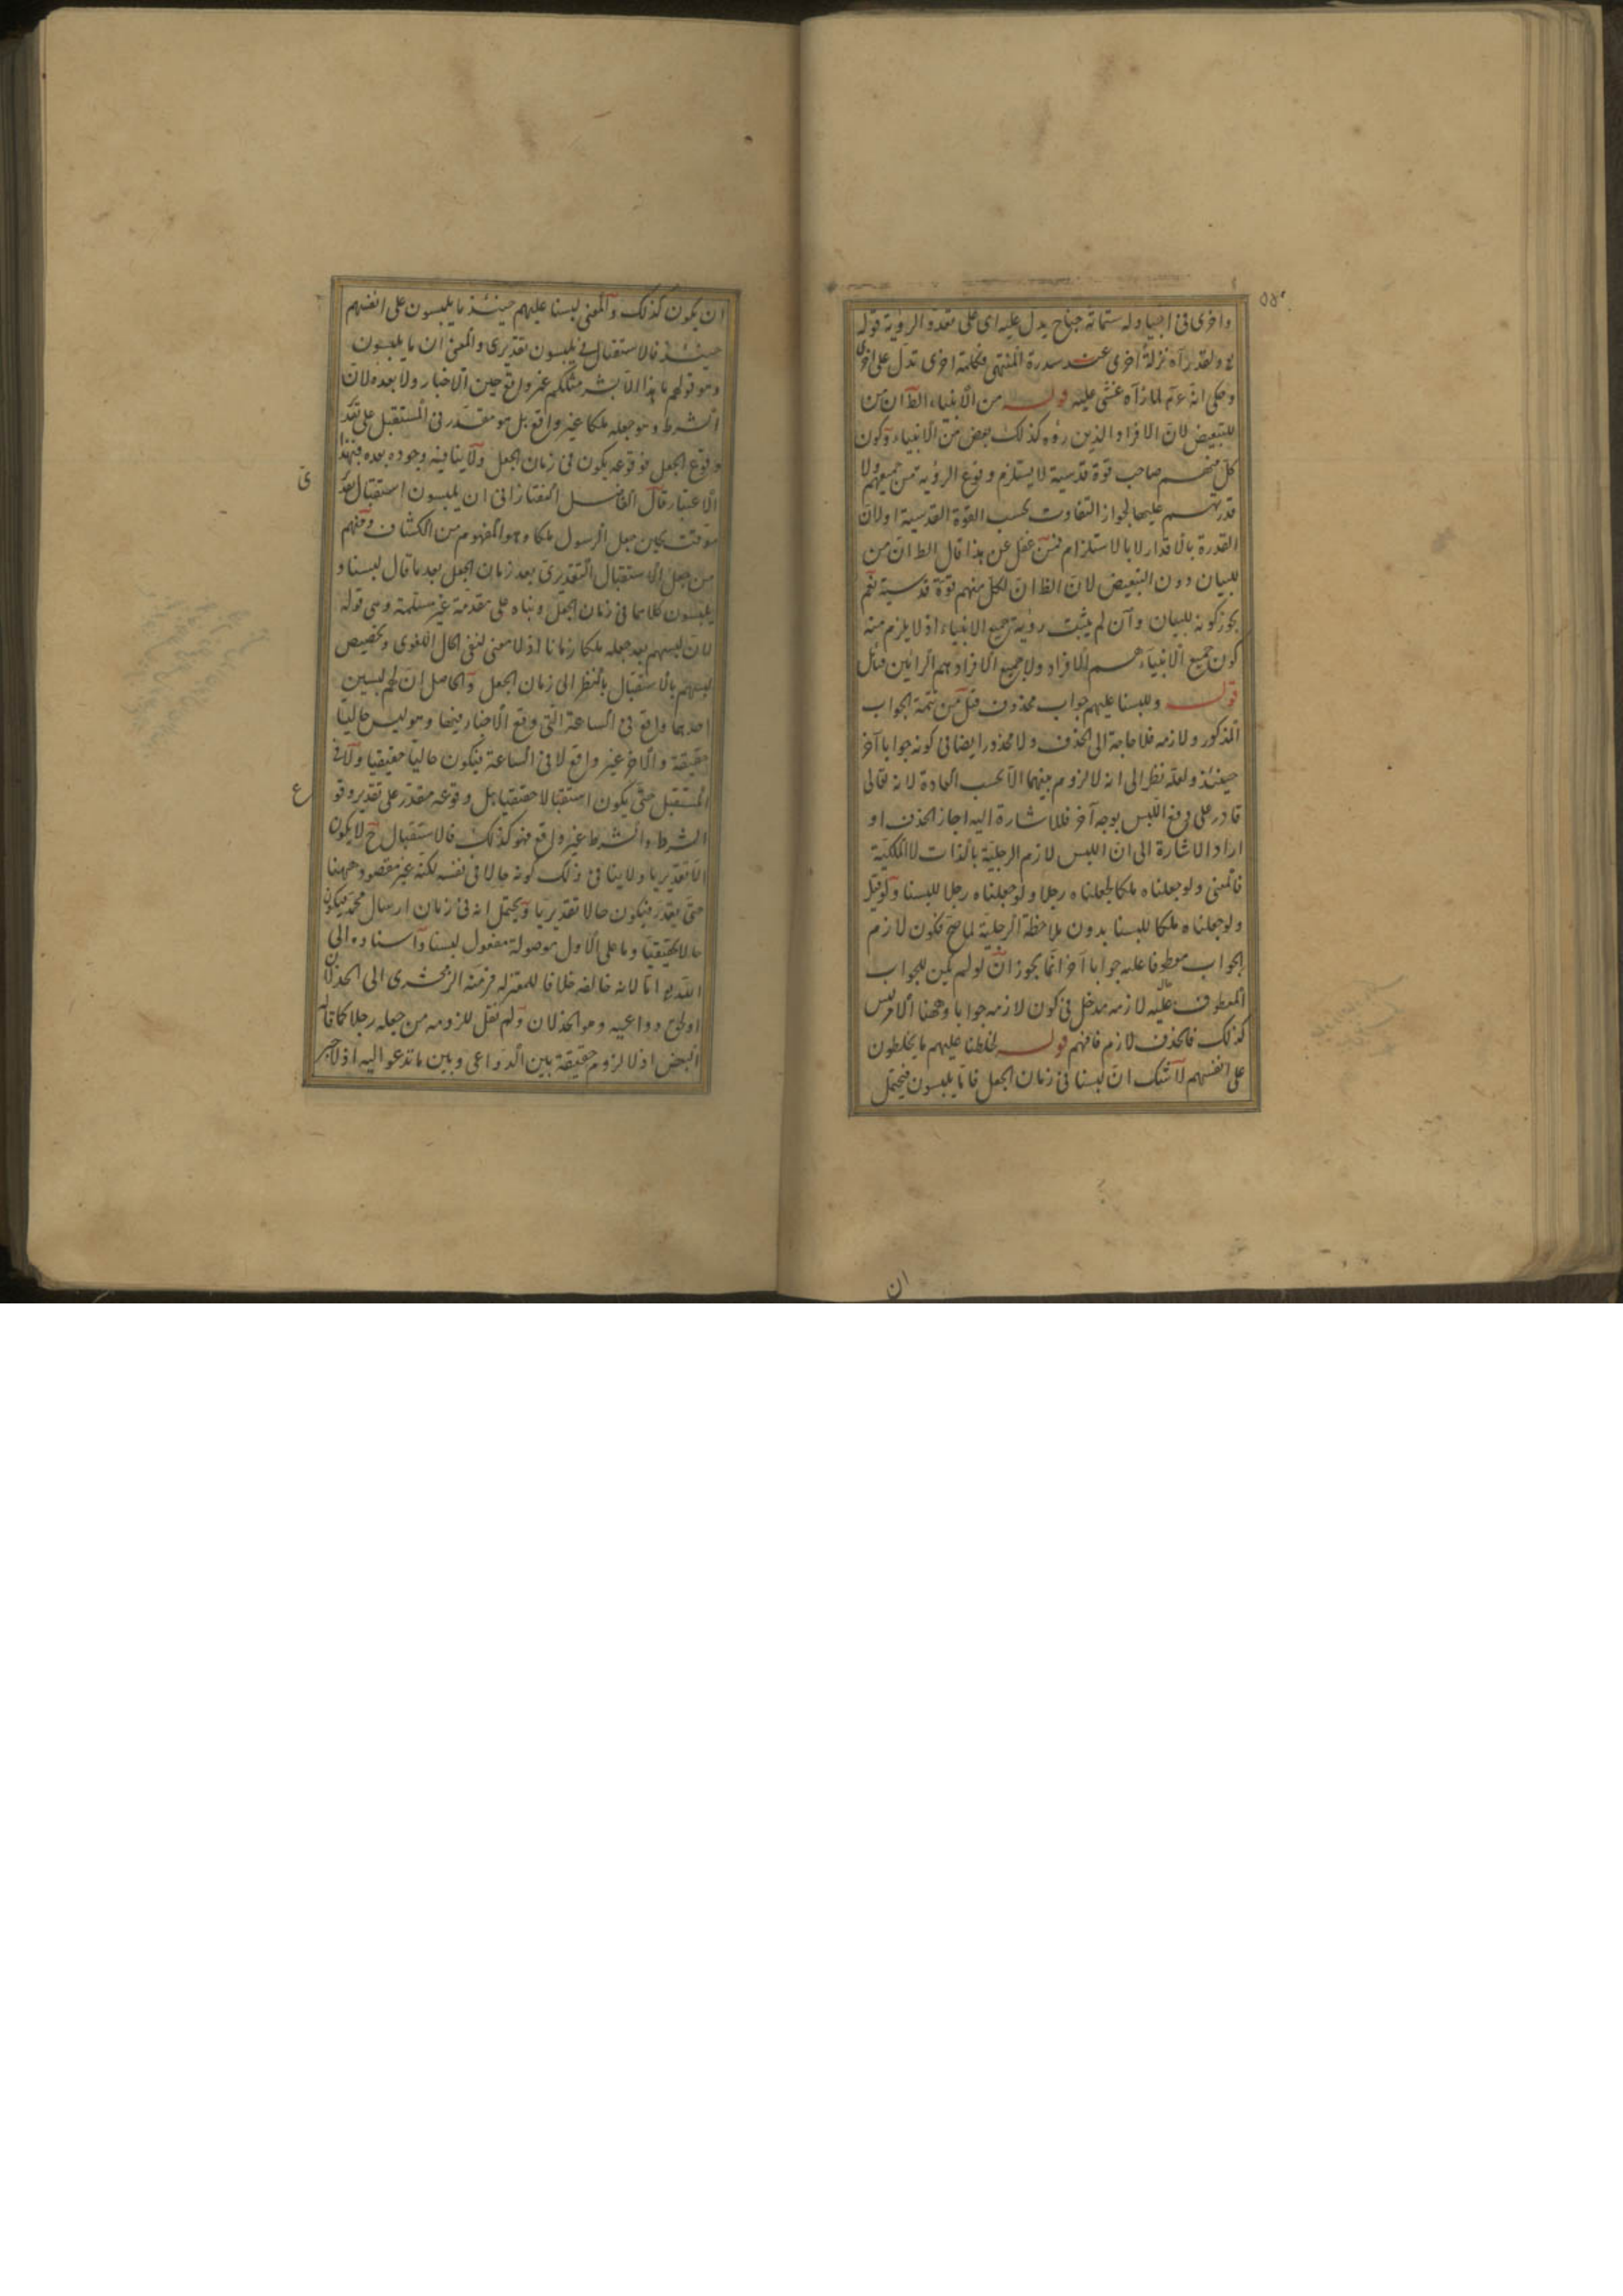 واخرى فى اجياد وله ستمائة جناح يدل عليه اى على تعدد الرؤية قوله
تع ولقد رآه نزلة اخرى عند سدرة المنتهى فكلمة اخرى تدل على اخرى
وحكى انه ع م لما رآه غشى عليه قوله من الانبياء الظ ان من
للتبعيض لان الافراد الذين رؤه كذلك بعض من الانبياء وكون
كل منهم صاحب قوة قدسية لا يستلزم وقوع الرؤية من جميعهم ولا
قدرتهم عليها لجواز التفاوت بحسب القوة القدسية او لان
القدرة بالاقدار لا بالاستلزام فمن غفل عن هذا قال الظ ان من
للبيان دون التبعيض لان الظ ان لكل منهم قوة قدسية نعم
يجوز كونه للبيان وان لم يثبت رؤية جميع الانبياء اذ لا يلزم منه
كون جميع الانبياء هم الافراد ولا جميع الافراد هم الرائين فتأمل
قوله وللبسنا عليهم جواب محذوف قيل من تتمة الجواب
المذكور ولازمه فلا حاجة الى الحذف ولا محذور ايضا فى كونه جوابا آخر
حينئذ ولعله نظر الى انه لا لزوم بينهما الا بحسب العادة لانه تعالى
قادر على دفع اللبس بوجه آخر فللاشارة اليه اجاز الحذف او
اراد الاشارة الى ان اللبس لازم الرجلية بالذات لا الملكية
فالمعنى ولو جعلناه ملكا لجعلناه رجلا ولو جعلناه رجلا للبسنا ولو قيل
ولو جعلناه ملكا للبسنا بدون ملاحظة الرجلية لما صح فكون لازم
الجواب معطوفا عليه جوابا آخر انما يجوز ان لو لم يكن للجواب
المعطوف عليه لازمه مدخل فى كون لازمه جوابا وههنا الامر ليس
كذلك فالحذف لازم فافهم قوله لخلطنا عليهم ما يخلطون
على انفسهم لا شك ان لبسنا فى زمان الجعل فاما يلبسون فيحتمل
ان
ان يكون كذلك والمعنى لبسنا عليهم حينئذ ما يلبسون على انفسهم
حينئذ فالاستقبال فى يلبسون تقديرى والمعنى ان ما يلبسون
وهو قولهم ما هذا الا بشر مثلكم غير واقع حين الاخبار ولا بعده لان
الشرط وهو جعله ملكا غير واقع بل هو مقدر فى المستقبل على تقد
وقوع الجعل فوقوعه يكون فى زمان الجعل ولا ينافيه وجوده بعده فبهذا
الاعتبار قال الفاضل التفتازانى ان يلبسون استقبال تقد
موقت بحين جعل الرسول ملكا وهو المفهوم من الكشاف ومنهم
من جعل الاستقبال التقديرى بعد زمان الجعل بعد ما قال لبسنا و
يلبسون كلاهما فى زمان الجعل وبناه على مقدمة غير مسلمة وهى قوله
لان لبسهم بعد جعله ملكا زمانا اذ لا معنى لنفى الحال اللغوى وتخصيص
لبسهم بالاستقبال بالنظر الى زمان الجعل والحاصل ان لهم لبسين
احدهما واقع فى الساعة التى وقع الاخبار فيها وهو ليس حاليا
حقيقة والآخر غير واقع لا فى الساعة فيكون حاليا حقيقيا ولا فى
المستقبل حتى يكون استقبالا حقيقيا بل وقوعه مقدر على تقدير وقو
الشرط والشرط غير واقع فهو كذلك فالاستقبال ح لا يكون
الا تقديريا ولا ينافى ذلك كونه حالا فى نفسه لكنه غير مقصود ههنا
حتى يقدر فيكون حالا تقديريا ويحتمل انه فى زمان ارسال محمد فيكون
حالا حقيقيا وما على الاول موصولة مفعول لبسنا واسناده الى
الله تع اما لانه خالقه خلافا للمعتزلة فرمته الزمخشرى الى الخذلان
او لخلق دواعيه وهو الخذلان ولم نقل للزومه من جعله رجلا كما قاله
البعض اذ لا لزوم حقيقة بين الدواعى وبين ما تدعو اليه اذ لا جبر